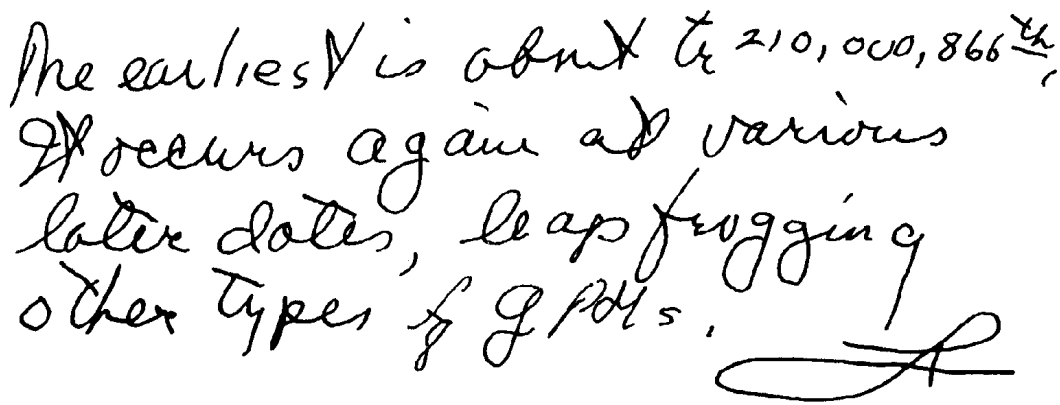 The earliest is about the 210,000,866th.
It occurs again at various
later dates, leap frogging
other types of